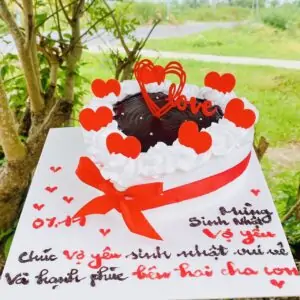 love
07-11
Mừng
Sinh Nhật
Vợ yêu
Chúc vợ yêu sinh nhật vui vẻ
Và hạnh phúc bên hai cha con